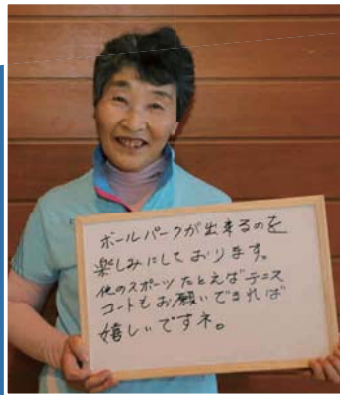 ボールパークが出来るのを
楽しみにしております。
他のスポーツたとえばテニス
コートもお願いできれば
嬉しいですネ。